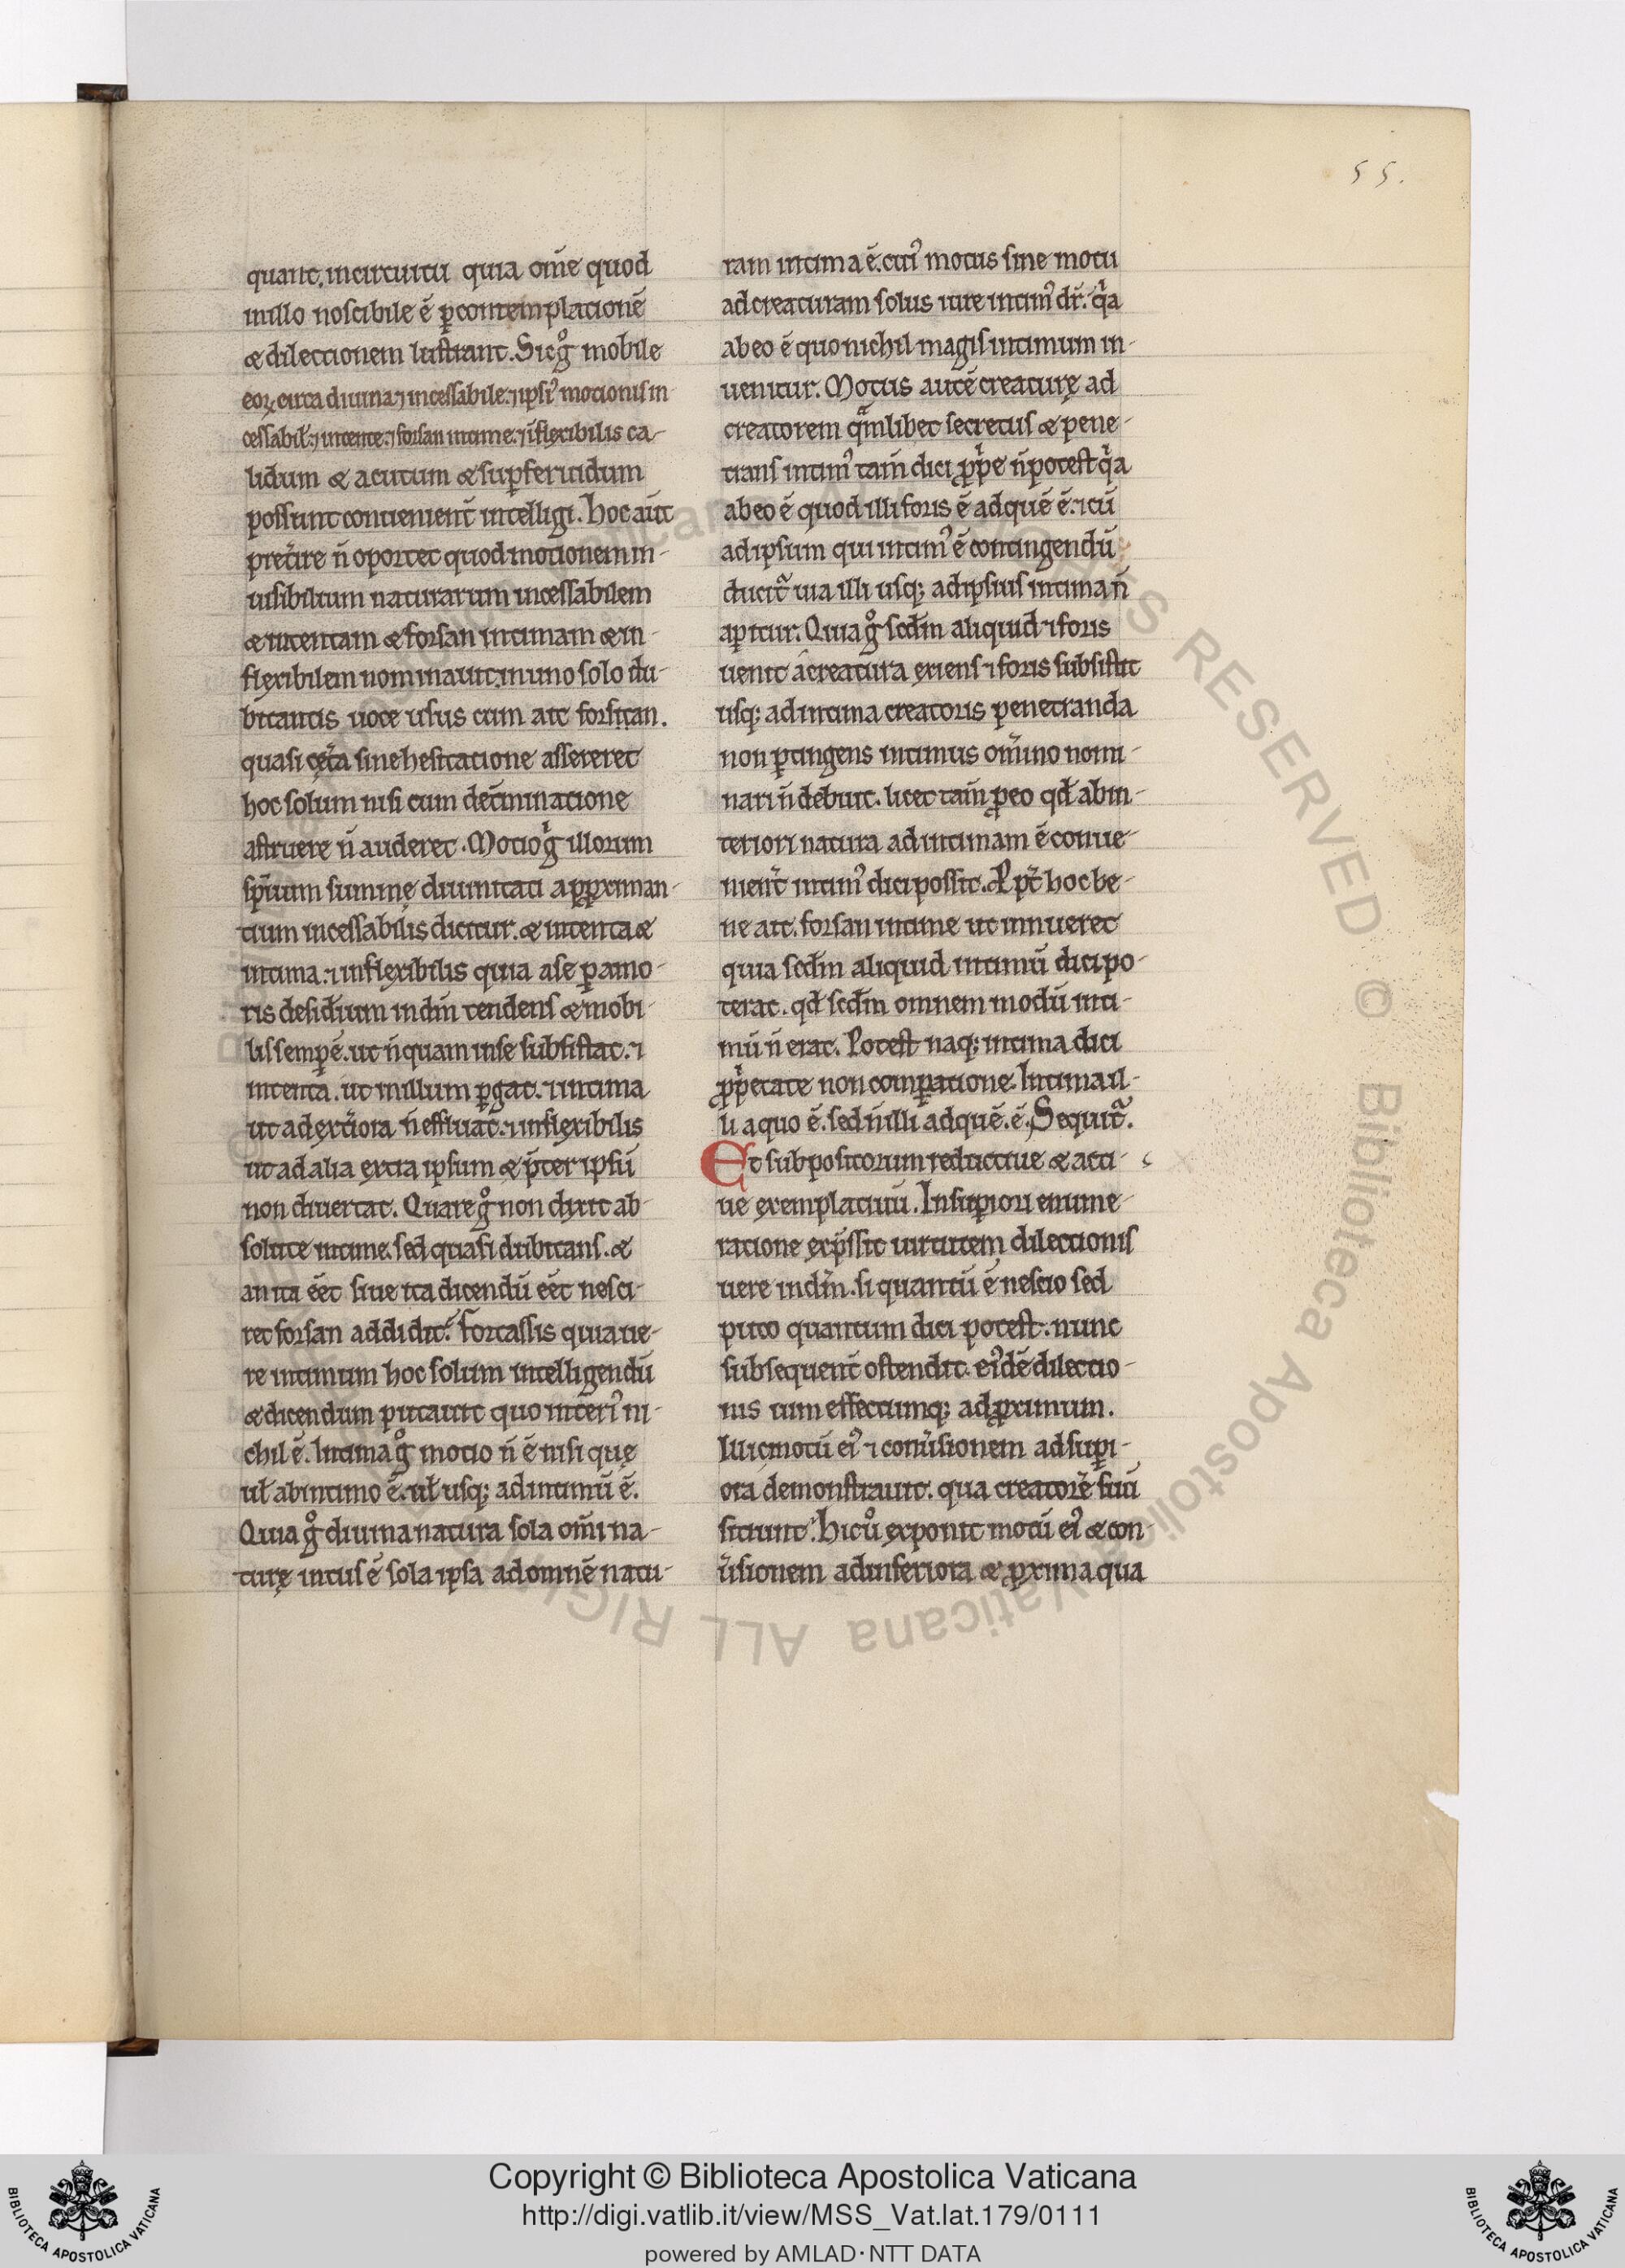 55.
quant. incircuitu quia om̄e quod
inillo noscibile ē ꝑcontemplationē
& dilectionem lustrant. Sic gͦ mobile
eoꝝ circa diuina ⁊ incessabile. ⁊ ipsiꝰ motionis in-
cessabił. ⁊ intente. ⁊ forsan intime. ⁊ īflexibilis ca-
lidum & acutum & suꝑferuidum
possunt conuenient̄ intelligi. Hoc aūt
pret̄ire n̄ oportet quod motionem in-
uisibilium naturarum incessabilem
& intentam & forsan intimam & in-
flexibilem nominauit. inuno solo du-
bitantis uoce usus cum ait forsitan.
quasi cęt̄a sine hesitatione assereret
hoc solum nisi cum det̄minatione
astruere n̄ auderet. Motio gͥ illorum
sp̄iuum summę diuinitati aꝓpximan-
tium incessabilis dicitur. & intenta &
intima. ⁊ inflexibilis quia ase ꝑ amo-
ris desid̄ium ind̄m tendens & mobi-
lis semꝑ ē. ut n̄quam inse subsistat. ⁊
intenta. ut inillum ꝑgat. ⁊ intima
ut adext̄iora n̄ effluat̄. ⁊ inflexibilis
ut ad alia extra ipsum & p̄ter ipsū
non diuertat. Quare gͦ non dixit ab-
solute intime. sed quasi dubitans. &
an ita ēēt siue ita dicendū ēēt nesci-
ret forsan addidit? Fortassis quia ue-
re intimum hoc solum intelligendū
& dicendum putauit quo int̄eriꝰ ni-
chil ē. Intima gͦ motio n̄ ē nisi quę
uł abintimo ē. uł usq; ad intimū ē.
Quia gͦ diuina natura sola om̄i na-
turę intus ē sola ipsa ad omnē natu-
ram intima ē. cuiꝰ motus sine motu
ad creaturam solus iure intimꝰ dr̄. qͥa
abeo ē quo nichil magis intimum in-
uenitur. Motus autē creaturę ad
creatorem qͣmlibet secretus & pene-
trans intimꝰ tam̄ dici ꝓpͥe n̄ potest qͥa
abeo ē quod illi foris ē ad quē ē. ⁊ cū
adipsum qui intimꝰ ē contingendū
ducit᷑ uia illi usq; ad ipsius intima n̄
apitur. Quia gͦ sed̄m aliquid ⁊ foris
uenit a creatura exiens ⁊ foris subsistit
usq; ad intima creatoris penetranda
non ꝑtingens intimus om̄ino nomi-
nari n̄ debuit. licet tam̄ ꝓeo qd̄ abin-
teriori natura ad intimam ē conue-
nient̄ intimꝰ dici possit. & ꝓpt̄ hoc be-
ne ait. forsan intime ut innueret
quia sed̄m aliquid intimū dici po-
terat. qd̄ sed̄m omnem modū inti-
mū n̄ erat. Potest naq; intima dici
ꝓpͥetate non comꝑatione. Intima il-
li aquo ē. sed n̄ illi ad quē. ē. Sequit᷑.
Et subpositorum reductiue & acti-
ue exemplatiuū. In suꝑiori enume-
ratione exp̄ssit uirtutem dilectionis
uere ind̄m. si quantū ē nescio sed
puto quantum dici potest. nunc
subsequent̄ ostendit. eiꝰdē dilectio-
nis uim effectumq; ad ꝓximum.
Illic motū eiꝰ ⁊ conūsionem ad suꝑi-
ora demonstrauit. qua creatorē suū
sitiunt. Hic uͦ exponit motū eiꝰ & con-
ūsionem ad inferiora & ꝓxima qua
Copyright © Biblioteca Apostolica Vaticana
http://digi.vatlib.it/view/MSS_Vat.lat.179/0111
powered by AMLAD·NTT DATA
BIBLIOTECA APOSTOLICA VATICANA
BIBLIOTECA APOSTOLICA VATICANA